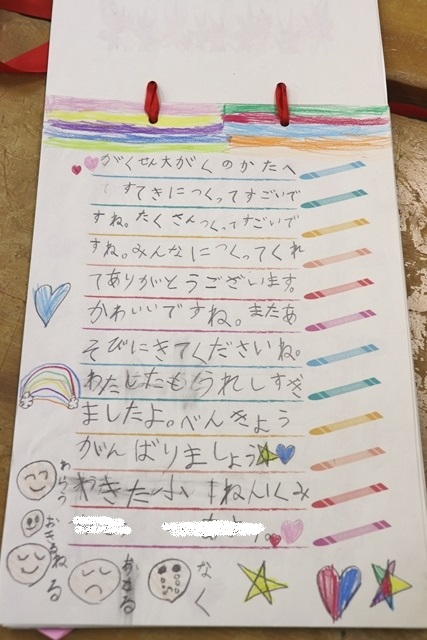 がくせん大がくのかたへ
すてきにつくってすごいで
すね。たくさんつくってすごいで
すね。みんなにつくってくれ
てありがとうございます。
かわいいですね。またあ
そびにきてくださいね。
わたしたもうれしすぎ
ましたよ。べんきょう
がんばりましょう
わきた小 1ねん1くみ
わらう
おきる
ねる
おこる
なく